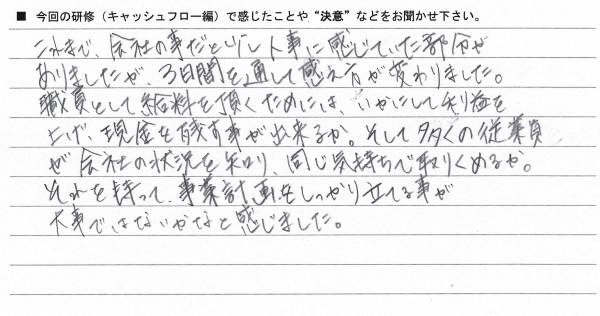 ■ 今回の研修（キャッシュフロー編）で感じたことや“決意”などをお聞かせ下さい。
これまで、会社の事だと少し人事に感じていた部分が
ありましたが、3日間を通して感え方が変わりました。
職員として給料を頂くためには、いかにして利益を
上げ、現金を残す事が出来るか。そして多くの従業員
が会社の状況を知り、同じ気持ちで取りくめるか。
それを持って、事業計画をしっかり立てる事が
大事ではないかなと感じました。